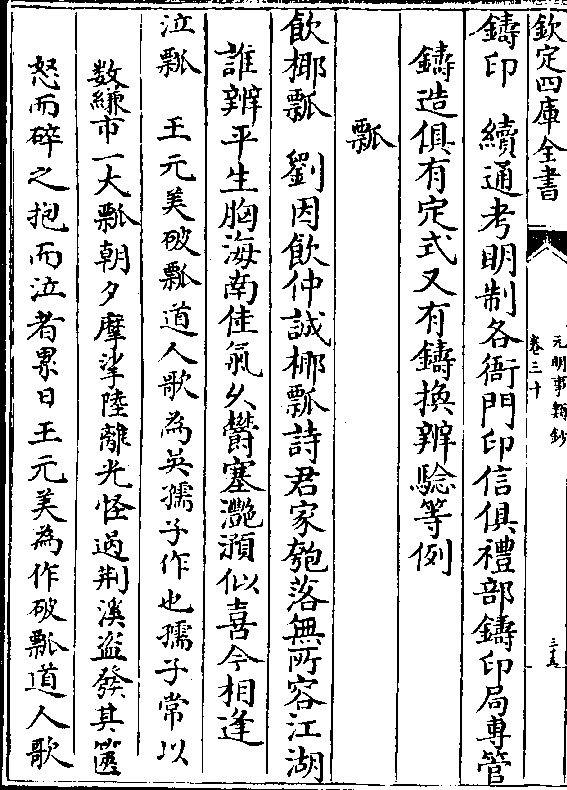 欽定四庫全書
元明事類鈔
卷三十
三五
鑄印　續通考明制各衙門印信俱禮部鑄印局專管
鑄造俱有定式又有鑄換辨驗等例
瓢
飲椰瓢　劉因飲仲誠椰瓢詩君家匏落無所容江湖
誰辨平生胸海南佳氣久鬱塞灩澦似喜今相逢
泣瓢　王元美破瓢道人歌為英孺子作也孺子常以
数縑市一大瓢朝夕摩挲陸離光怪過荆溪盜發其篋
怒而碎之抱而泣者累日王元美為作破瓢道人歌